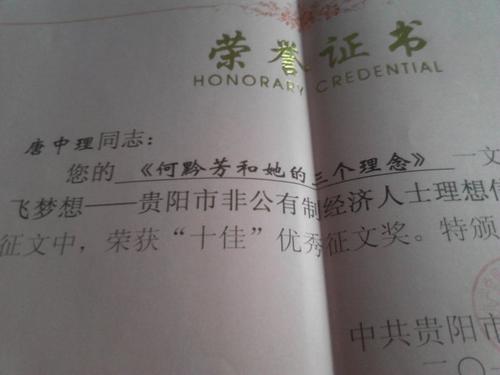 荣誉证书
HONORARY CREDENTIAL
唐中理同志：
您的《何黔芳和她的三个理念》一文
飞梦想——贵阳市非公有制经济人士理想信
征文中，荣获“十佳”优秀征文奖。特颁
中共贵阳市
二〇一